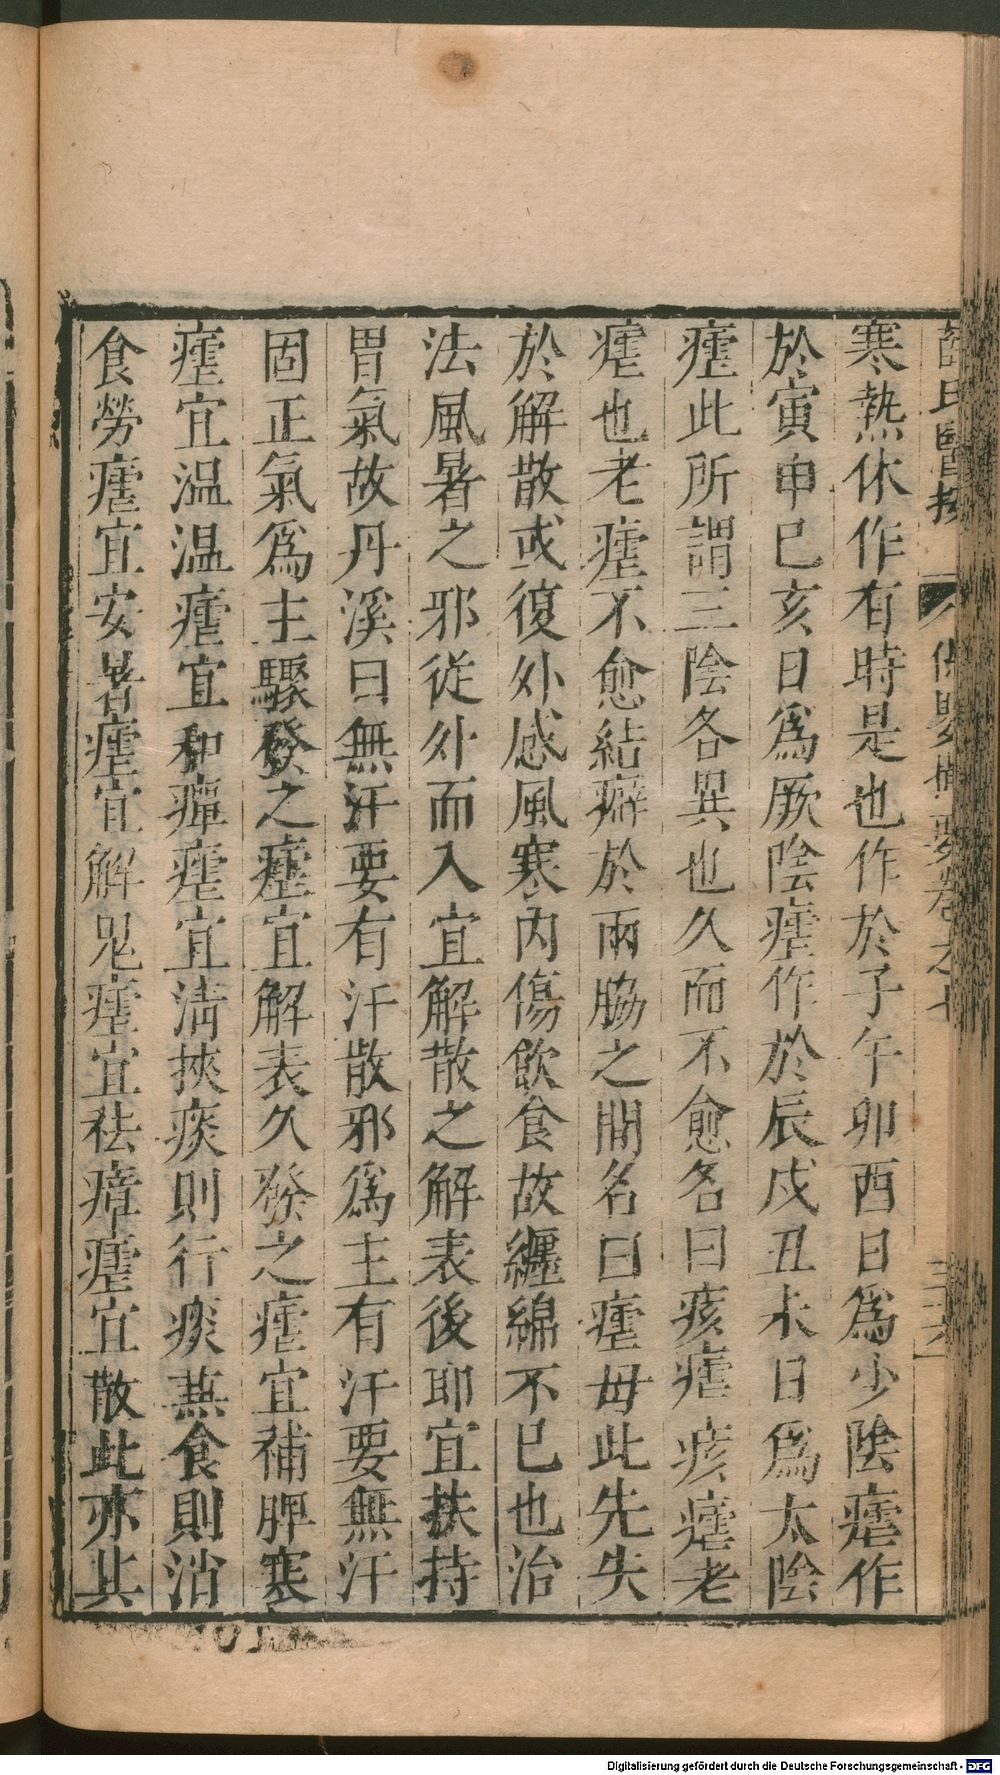 薛氏醫按
保嬰撮要卷之七
三六
寒熱休作有時是也作於子午卯酉日爲少陰瘧作
於寅申巳亥日爲厥陰瘧作於辰戌丑未日爲太陰
瘧此所謂三陰各異也久而不愈名曰痎瘧痎瘧老
瘧也老瘧不愈結癖於兩脇之間名曰瘧母此先失
於解散或復外感風寒內傷飲食故纏綿不已也治
法風暑之邪從外而入宜解散之解表後耶宜扶持
胃氣故丹溪曰無汗要有汗散邪爲主有汗要無汗
固正氣爲主驟發之瘧宜解表久發之瘧宜補脾寒
瘧宜温温瘧宜和癉瘧宜清挾痰則行痰蒹食則消
食勞瘧宜安暑瘧宜解鬼瘧宜祛瘴瘧宜散此亦其
Digitalisierung gefördert durch die Deutsche Forschungsgemeinschaft - DFG